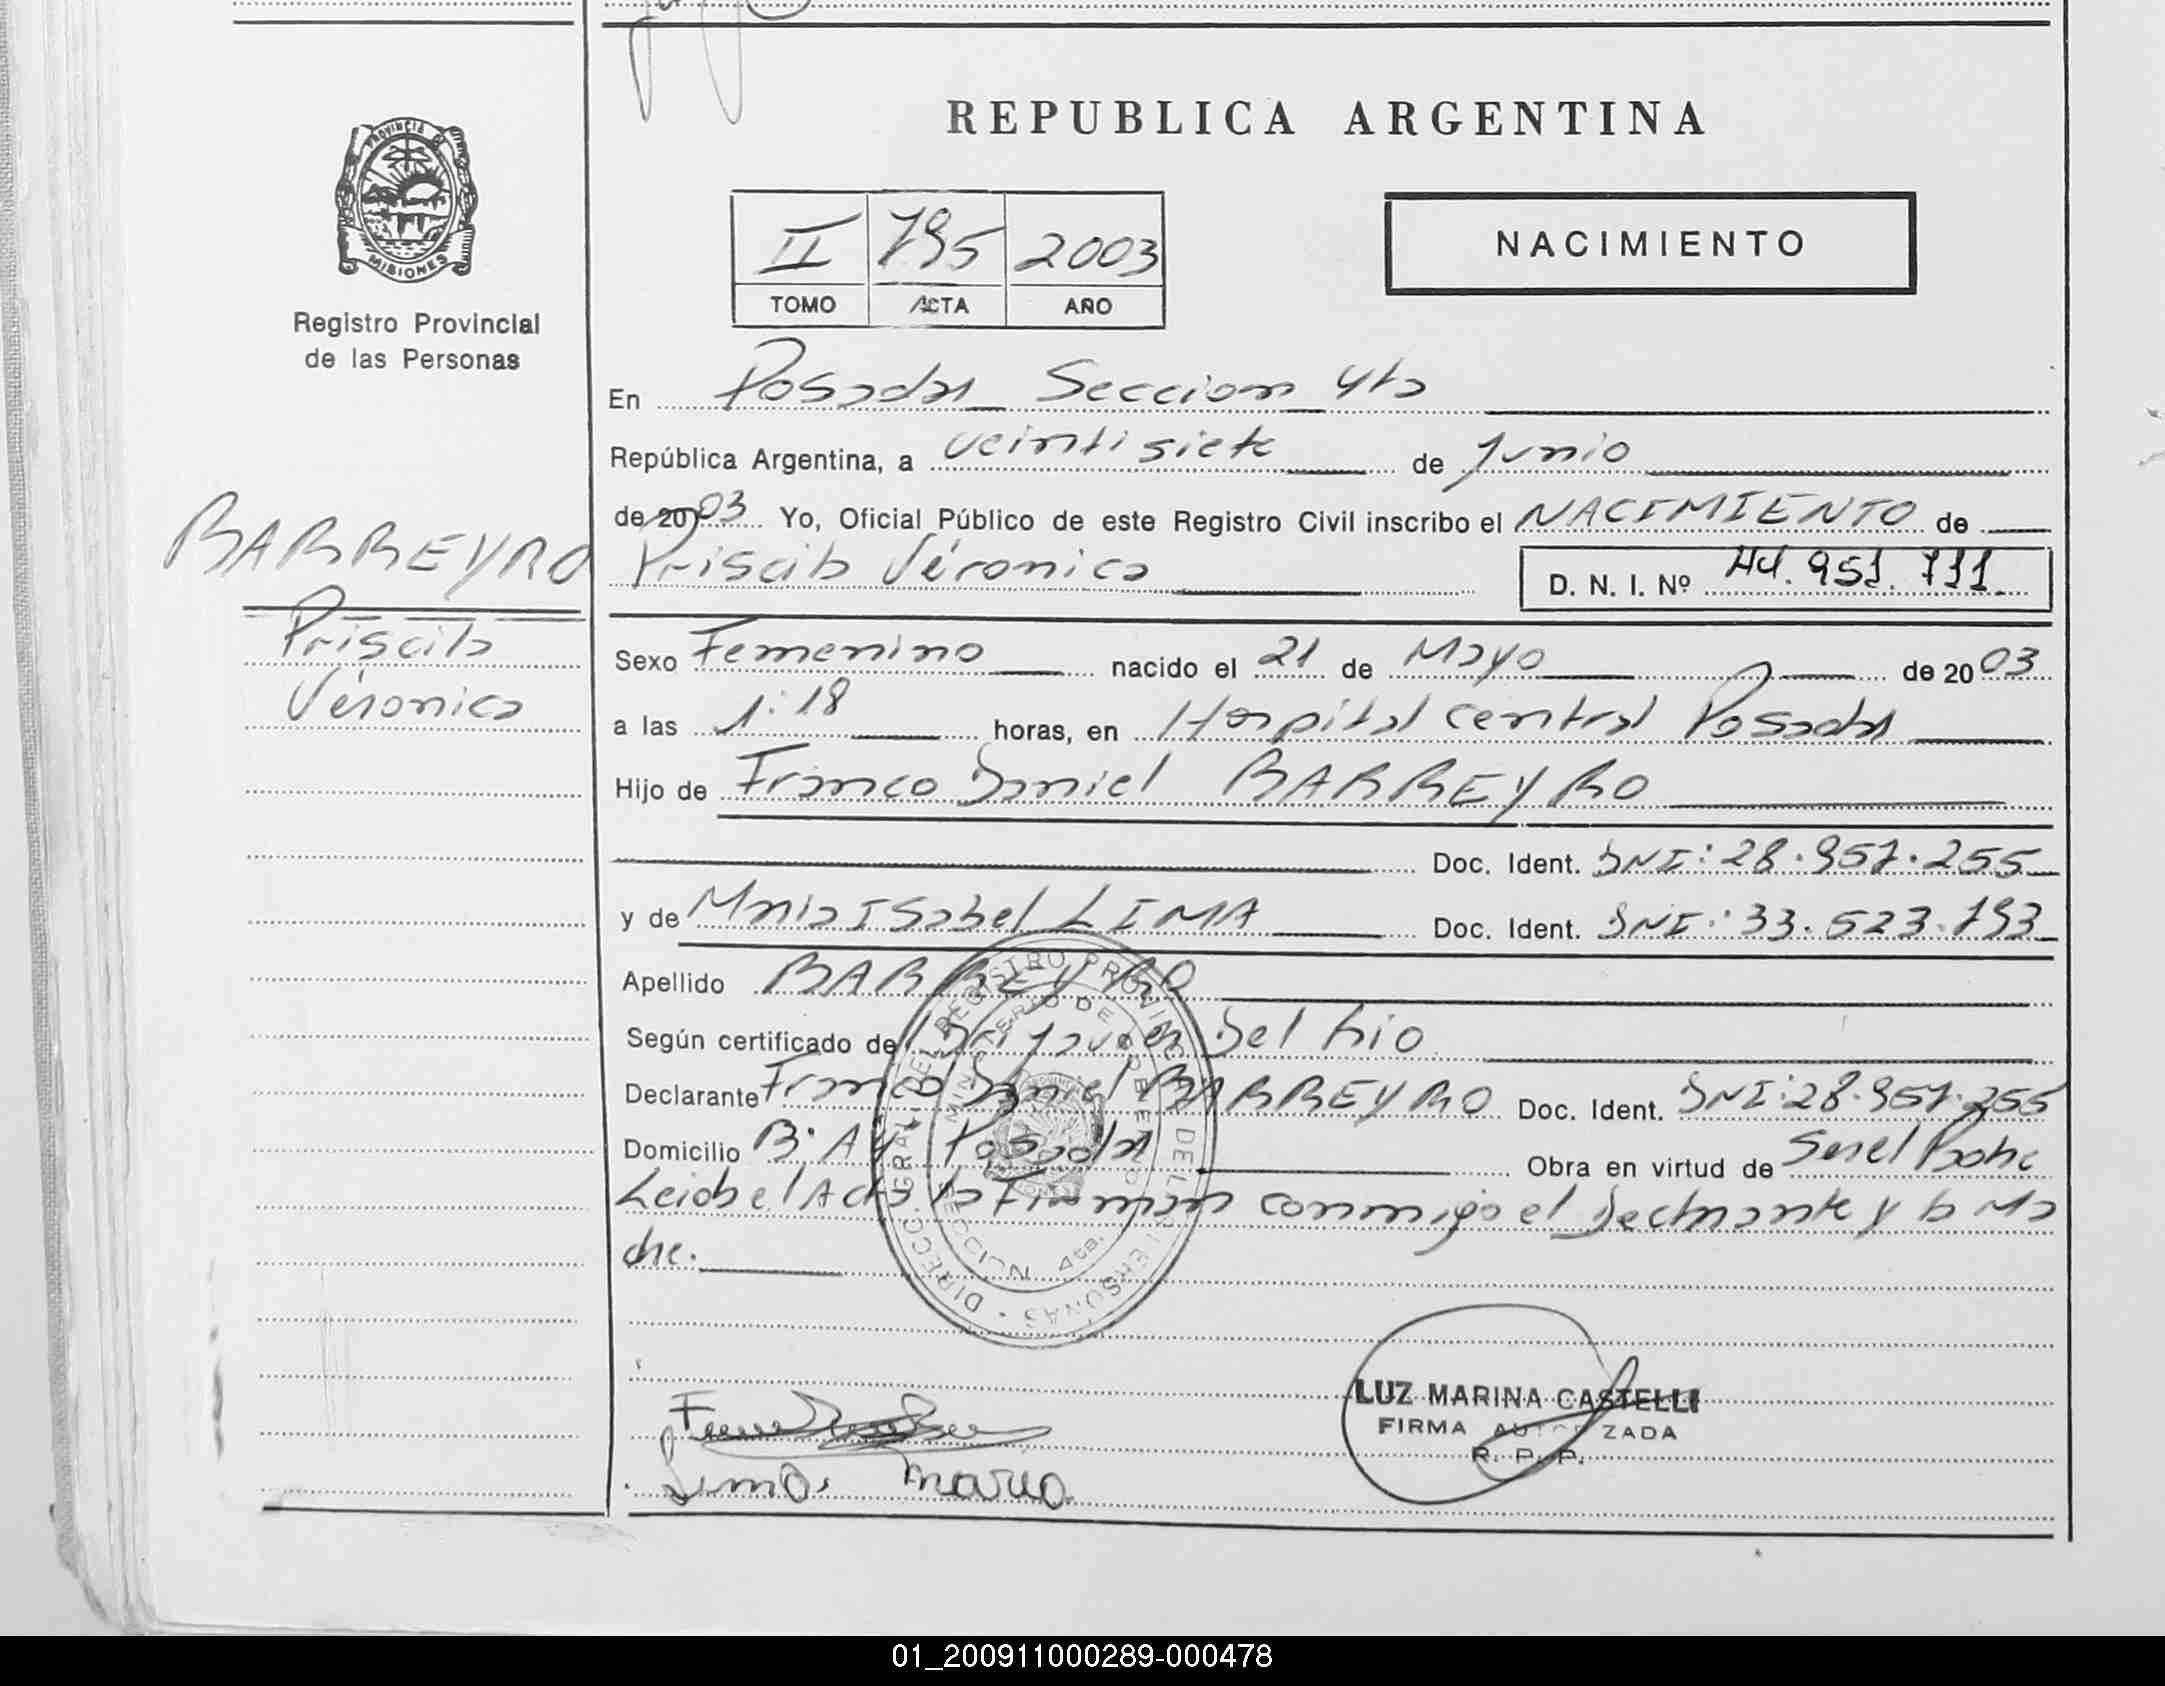 REPUBLICA ARGENTINA
PROVINCIA DE
MISIONES
Registro Provincial
de las Personas
II 795 2003
TOMO ACTA AÑO
NACIMIENTO
En Posadas Seccion 4ta
República Argentina, a veintisiete de Junio
de 2003 Yo, Oficial Público de este Registro Civil inscribo el NACIMIENTO de
BARREYRO
Priscila Véronica
D. N. I. Nº 44.951.711
Priscila
Véronica
Sexo Femenino nacido el 21 de Mayo de 2003
a las 1:18 horas, en Hospital central Posadas
Hijo de Franco Daniel BARREYRO
Doc. Ident. DNI: 28.957.255
y de Maria Isabel LIMA Doc. Ident. DNI: 33.523.793
Apellido BARREYRO
Según certificado de Javier Del Rio
Declarante Franco Daniel BARREYRO Doc. Ident. DNI: 28.957.255
Domicilio Posadas Obra en virtud de
Leida el Acta la Firman conmigo el Declarante y la Ma
dre.
DIRECC. GRAL. DEL REGISTRO PROVINC. DE LAS PERSONAS
MINISTERIO DE GOBIERNO
SECCION 4ta.
LUZ MARINA CASTELLI
FIRMA AUTORIZADA
R. P. P.
Lima Maria
01_200911000289-000478